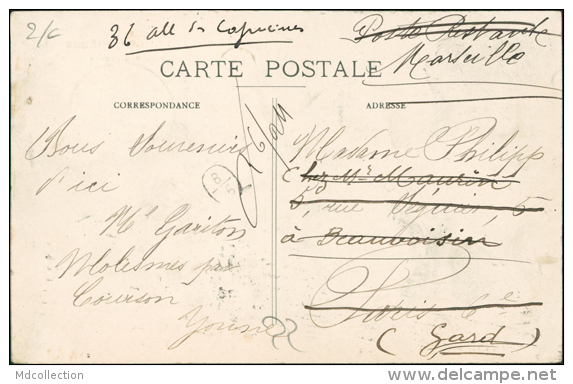 2/c
36 all des Capucines
Poste Restante
Marseille
CARTE POSTALE
CORRESPONDANCE
ADRESSE
Bons Souvenirs
d'ici
Molesmes par
Courson
Yonne
Madame Philipp
Chez Mr Maurin
5, rue 5
à Beauvoisin
Paris 6e
(Gard)
Mdcollection
www.delcampe.net